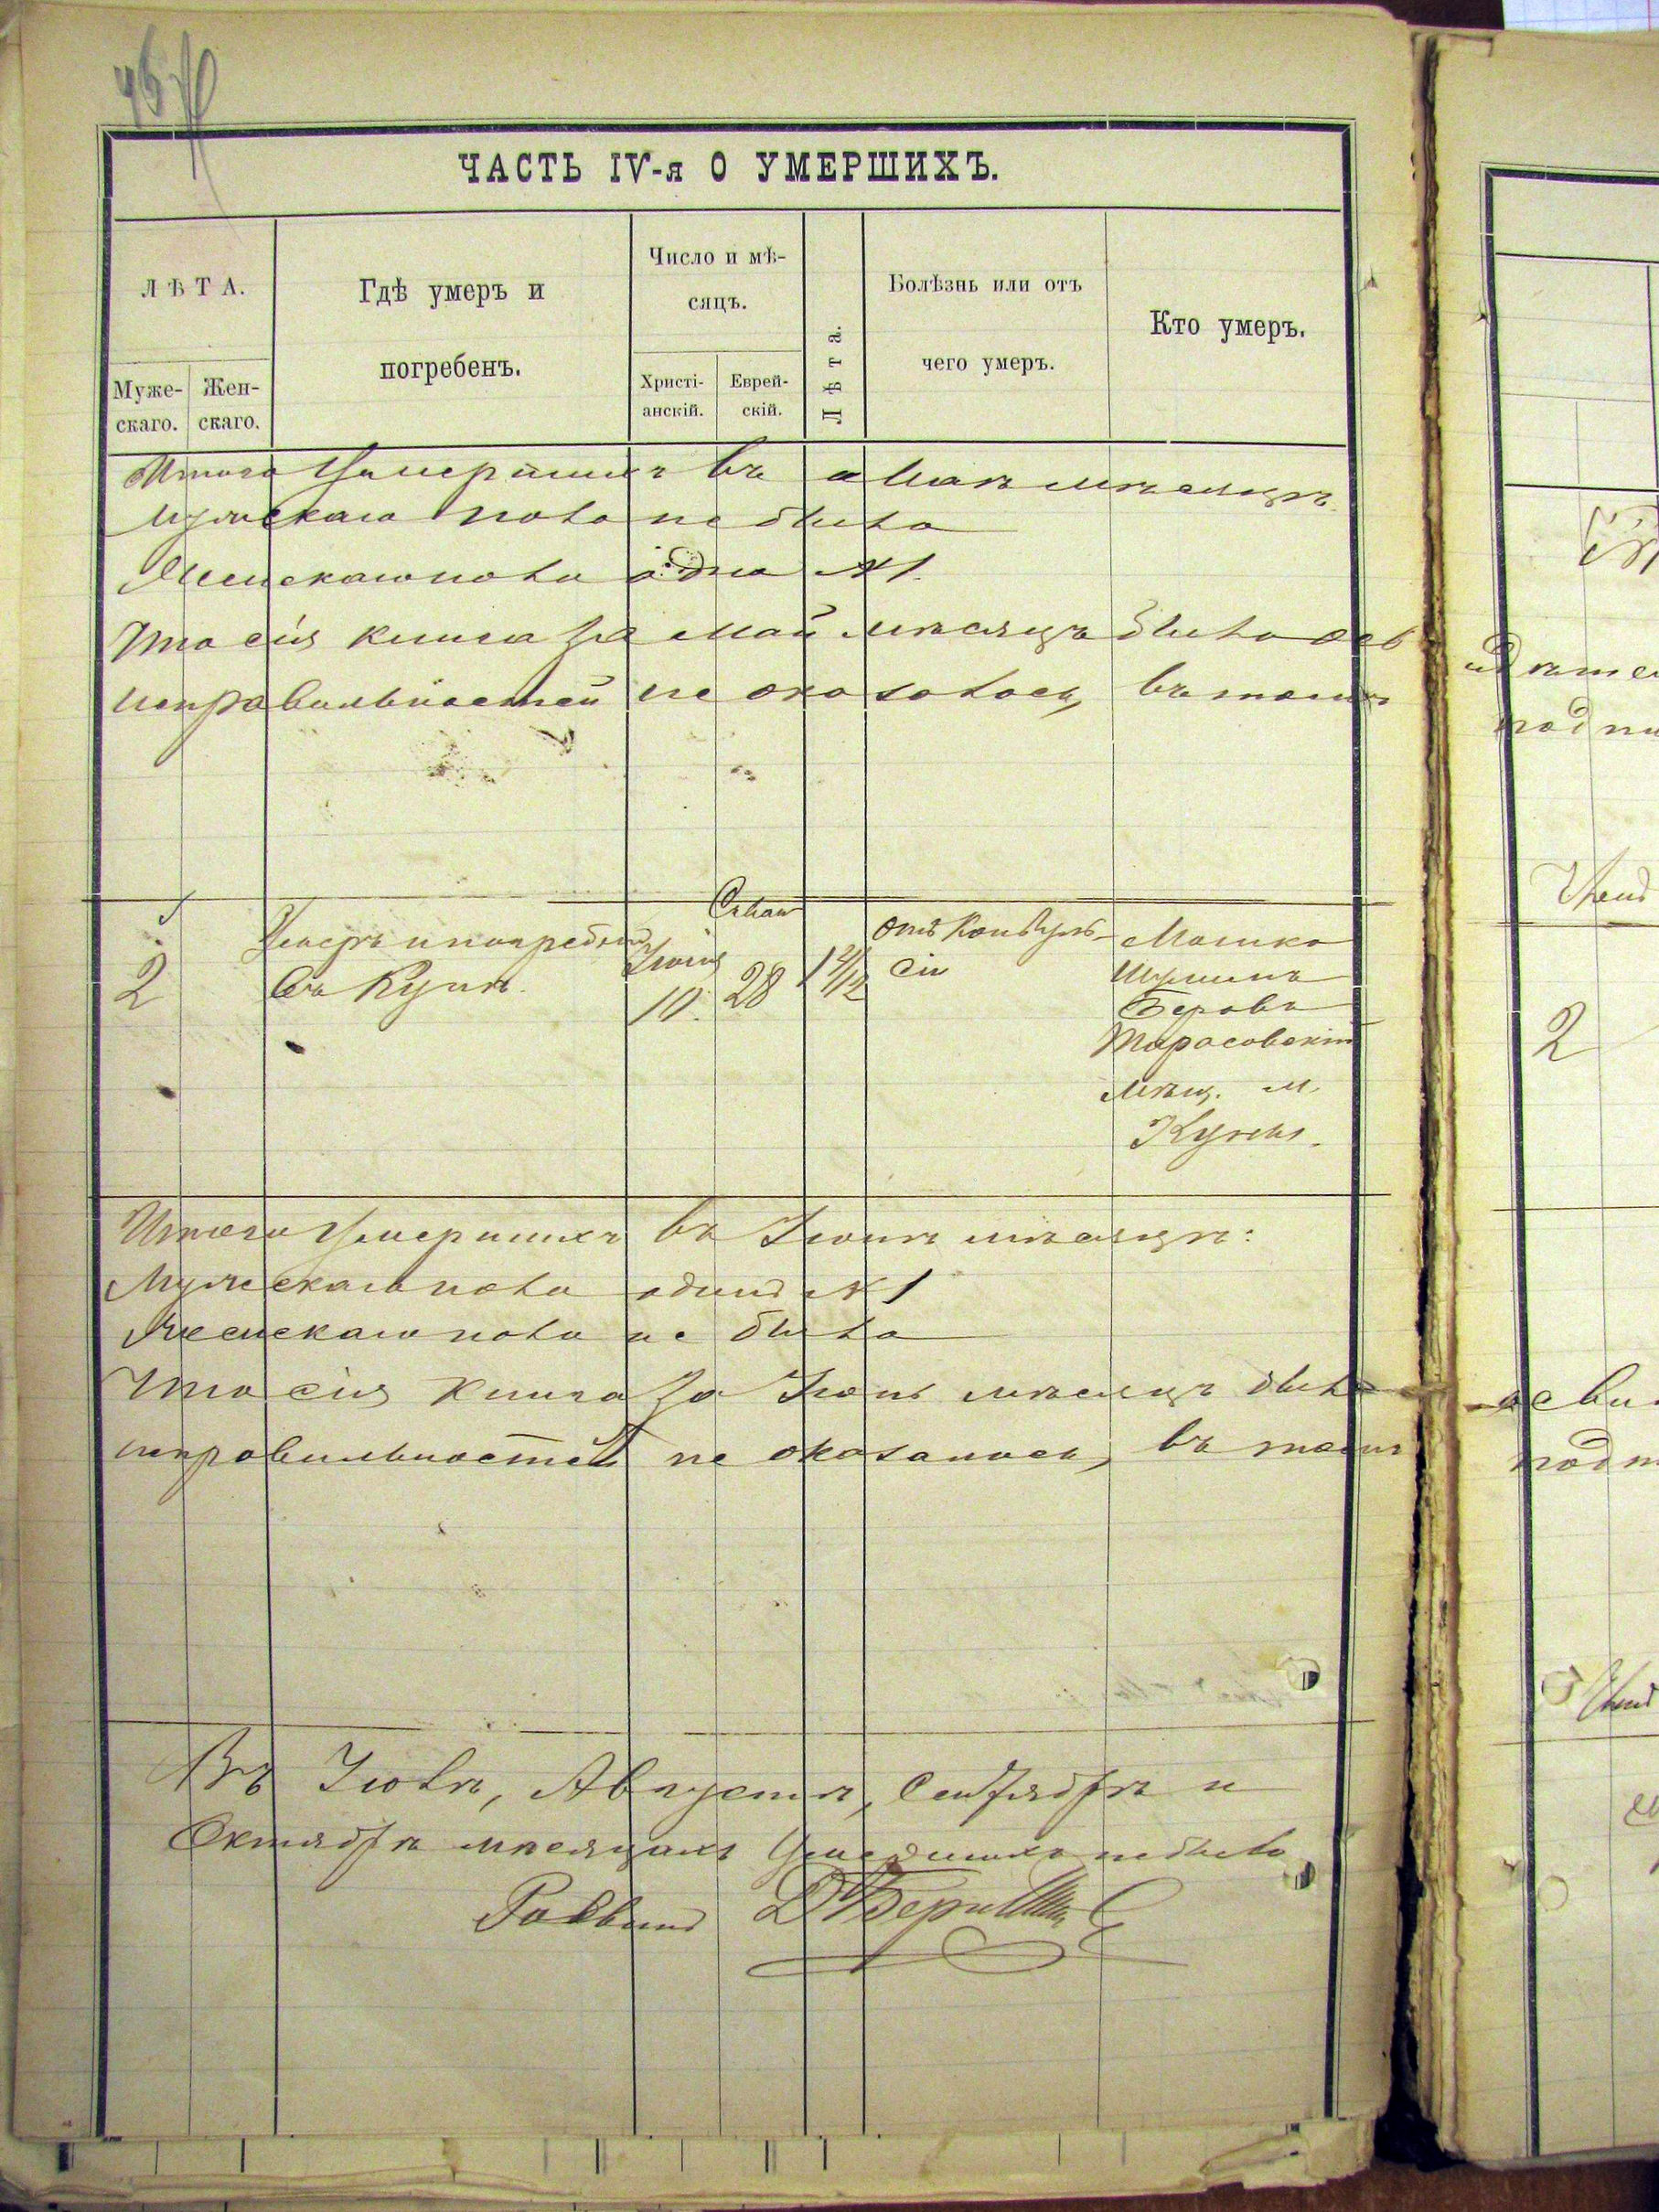 ЧАСТЬ IV-я О УМЕРШИХЪ.
ЛѢТА.
Муже-
скаго.
Жен-
скаго.
Гдѣ умеръ и
погребенъ.
Число и мѣ-
сяцъ.
Христі-
анскій.
Еврей-
скій.
Лѣта.
Болѣзнь или отъ
чего умеръ.
Кто умеръ.
Итого Умершихъ въ Маѣ мѣсяцѣ
Мужскаго пола не было
Женскаго пола одна №1.
Что сія книга за Май мѣсяцъ была
неправильностей не оказалось, въ томъ
2
Умеръ и погребенъ
въ Купѣ.
Іюня
10.
28
1
Отъ Конвуль-
сіи
Мошко
Шулимъ
Беровъ
Тарасовскій
мѣщ. м.
Купель.
Итого Умершихъ въ Іюнѣ мѣсяцѣ:
Мужескаго пола одинъ №1
Женскаго пола не было
Что сія книга за Іюнь мѣсяцъ была
неправильностей не оказалось, въ томъ
Въ Іюлѣ, Августѣ, Сентябрѣ и
Октябрѣ мѣсяцахъ Умершихъ не было
Раввинъ
2
подпи